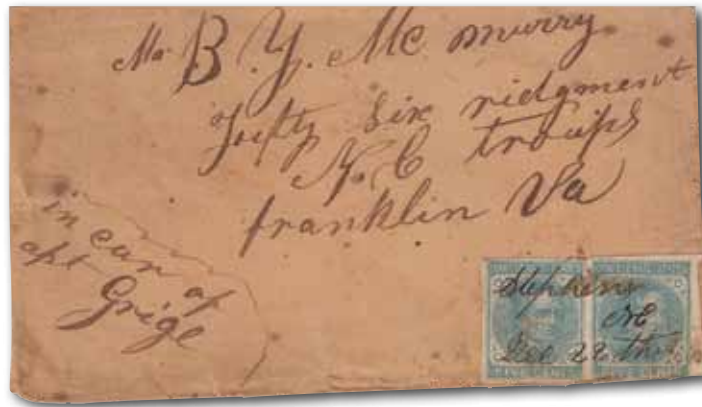 Mr. B. Y. Mc murry
fifty six ridgment
N. C troups
franklin Va
in car of
apt Grige
Stephens
Dec 22
FIVE CENTS